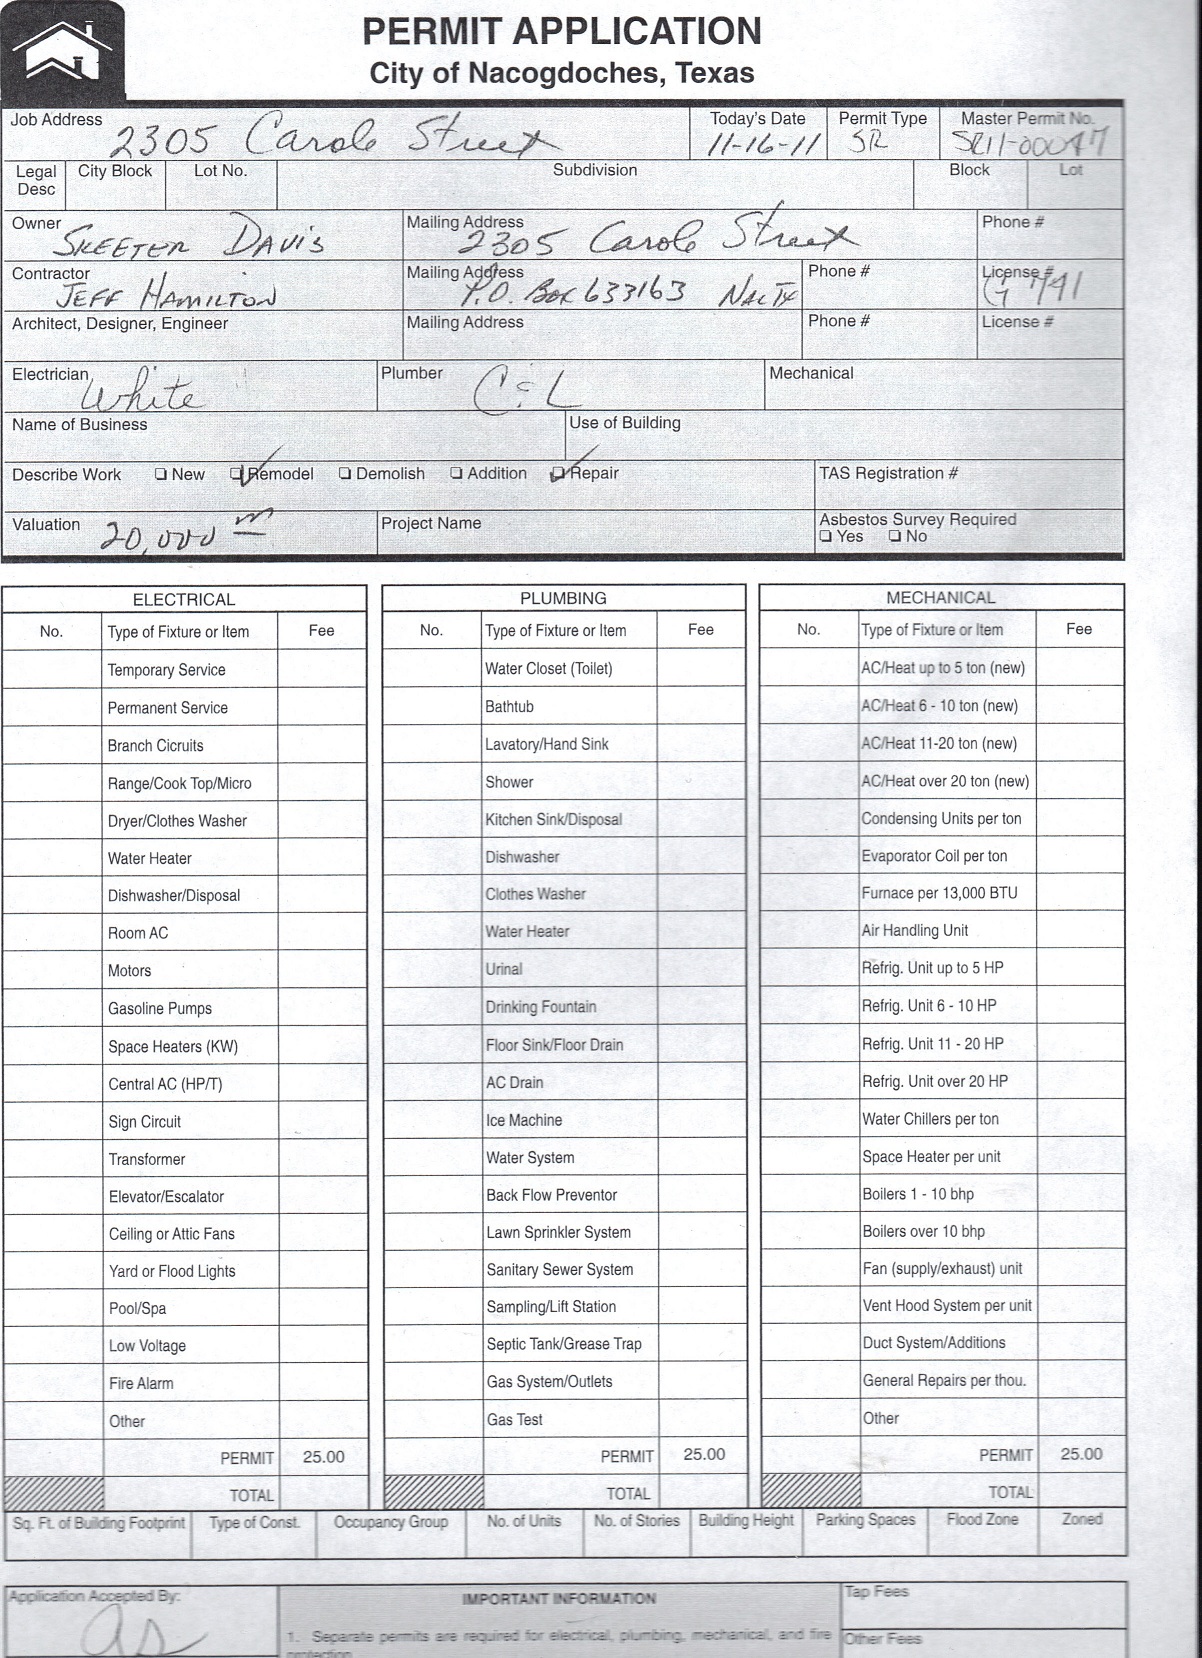 PERMIT APPLICATION
City of Nacogdoches, Texas
Job Address 2305 Carole Street Today's Date 11-16-11 Permit Type SR Master Permit No. SR11-00047
Legal Desc City Block Lot No. Subdivision Block Lot
Owner SKEETER DAVIS Mailing Address 2305 Carole Street Phone #
Contractor JEFF HAMILTON Mailing Address P.O. Box 633163 NAC TX Phone # License #
Architect, Designer, Engineer Mailing Address Phone # License #
Electrician White Plumber C & L Mechanical
Name of Business Use of Building
Describe Work New Remodel Demolish Addition Repair TAS Registration #
Valuation 20,000 Project Name Asbestos Survey Required
Yes No
ELECTRICAL PLUMBING MECHANICAL
No. Type of Fixture or Item Fee No. Type of Fixture or Item Fee No. Type of Fixture or Item Fee
Temporary Service Water Closet (Toilet) AC/Heat up to 5 ton (new)
Permanent Service Bathtub AC/Heat 6 - 10 ton (new)
Branch Cicruits Lavatory/Hand Sink AC/Heat 11-20 ton (new)
Range/Cook Top/Micro Shower AC/Heat over 20 ton (new)
Dryer/Clothes Washer Kitchen Sink/Disposal Condensing Units per ton
Water Heater Dishwasher Evaporator Coil per ton
Dishwasher/Disposal Clothes Washer Furnace per 13,000 BTU
Room AC Water Heater Air Handling Unit
Motors Urinal Refrig. Unit up to 5 HP
Gasoline Pumps Drinking Fountain Refrig. Unit 6 - 10 HP
Space Heaters (KW) Floor Sink/Floor Drain Refrig. Unit 11 - 20 HP
Central AC (HP/T) AC Drain Refrig. Unit over 20 HP
Sign Circuit Ice Machine Water Chillers per ton
Transformer Water System Space Heater per unit
Elevator/Escalator Back Flow Preventor Boilers 1 - 10 bhp
Ceiling or Attic Fans Lawn Sprinkler System Boilers over 10 bhp
Yard or Flood Lights Sanitary Sewer System Fan (supply/exhaust) unit
Pool/Spa Sampling/Lift Station Vent Hood System per unit
Low Voltage Septic Tank/Grease Trap Duct System/Additions
Fire Alarm Gas System/Outlets General Repairs per thou.
Other Gas Test Other
PERMIT 25.00 PERMIT 25.00 PERMIT 25.00
TOTAL TOTAL TOTAL
Sq. Ft. of Building Footprint Type of Const. Occupancy Group No. of Units No. of Stories Building Height Parking Spaces Flood Zone Zoned
Application Accepted By: IMPORTANT INFORMATION Tap Fees
1. Separate permits are required for electrical, plumbing, mechanical, and fire Other Fees
protection.